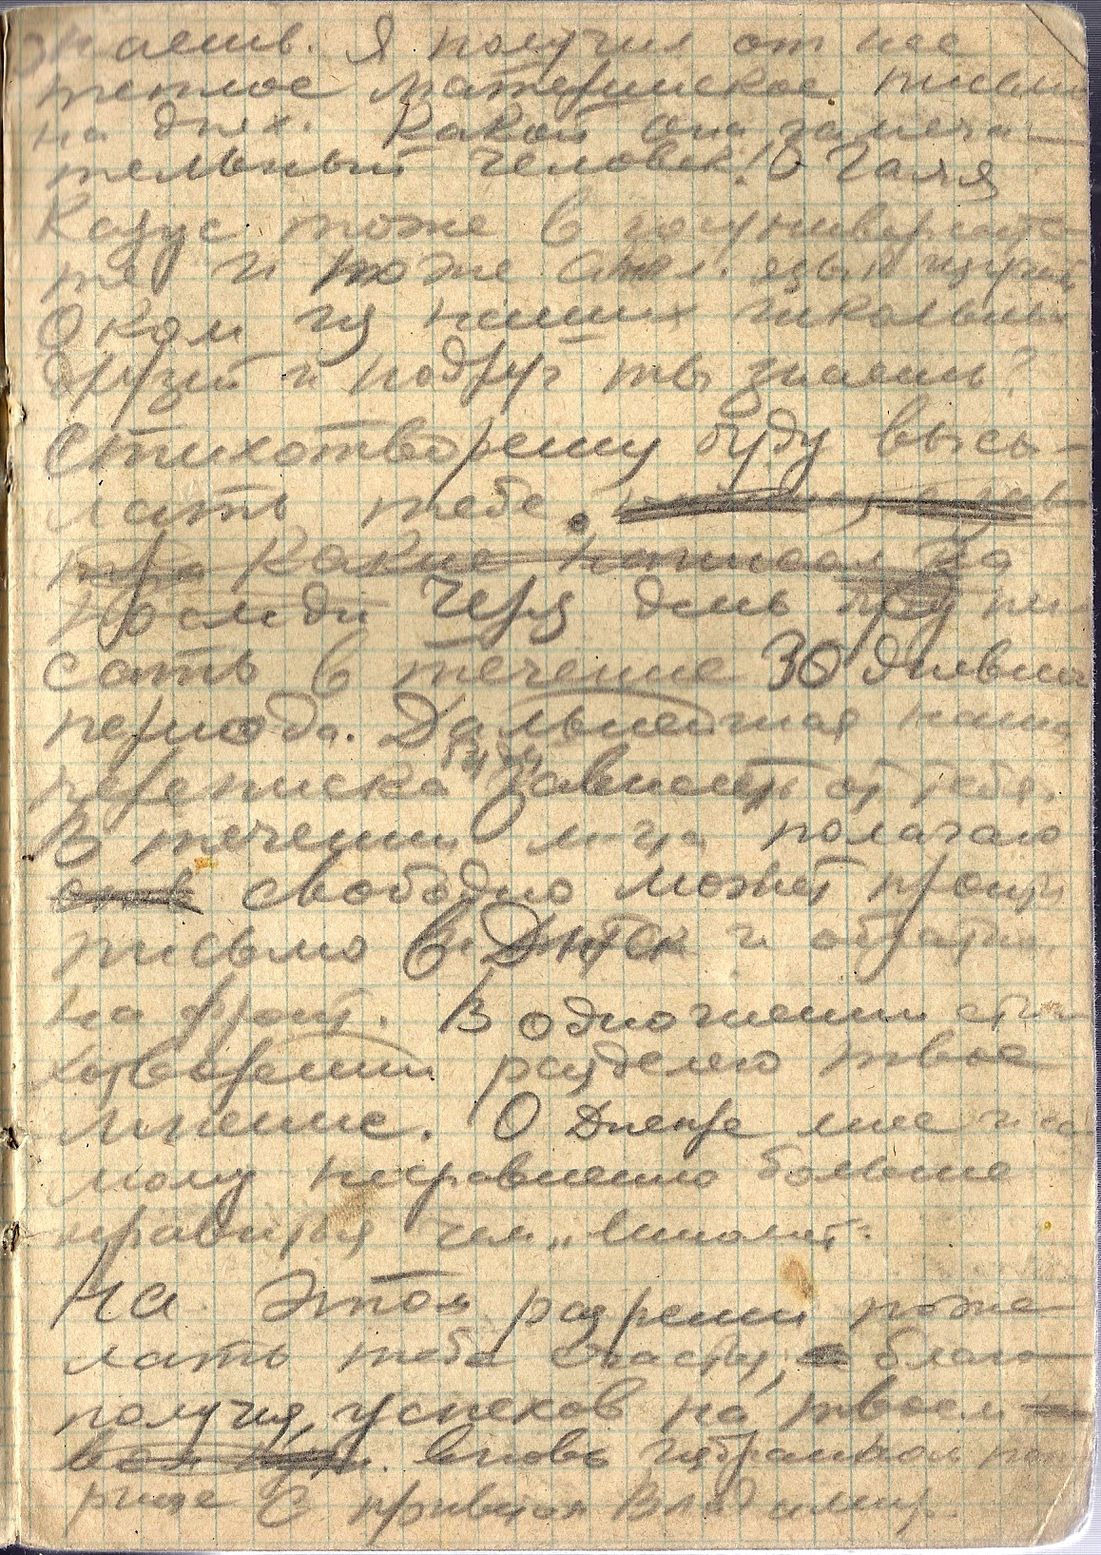 знаешь. Я получил от нее
теплое материнское письмо
на днях. Какой она замеча-
тельный человек! О Галя
Казус тоже в госуниверсите-
те и тоже англ. язык изучает
О ком из наших школьных
друзей и подруг ты знаешь?
Стихотворения буду высы-
лать тебе.
какие написал за
Через день буду пи
сать в течение 30 дневного
периода. Дальнейшая наша
переписка будет зависеть от тебя.
В течении м-ца полагаю
свободно может пройти
письмо в Днтск и обратно
на фронт. В отношении сти
хотворений разделяю твое
мнение. О Днепре мне са
мому несравненно больше
нравится чем „
На этом разреши поже
лать тебе счастья, благо
получия, успехов на твоем
вновь избранном поп
рище С приветом Владимир